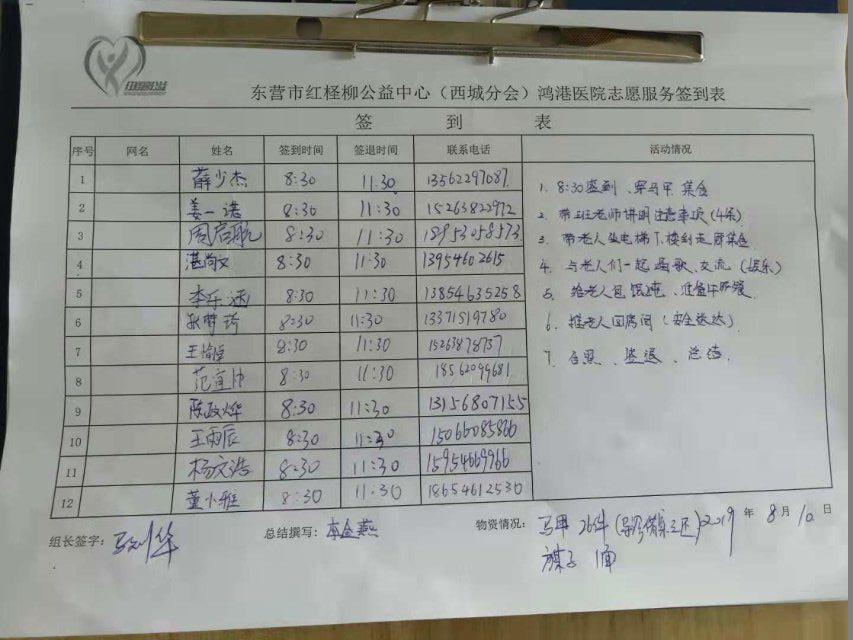 东营市红柽柳公益中心（西城分会）鸿港医院志愿服务签到表
签 到 表
序号 网名 姓名 签到时间 签退时间 联系电话 活动情况
1 薛少杰 8:30 11:30 13562297087
2 姜一诺 8:30 11:30 15263822972
3 周启航 8:30 11:30 18953058573
4 8:30 11:30 13954602615
5 李乐涵 8:30 11:30 13854635258
6 8:30 11:30 13371519780
7 8:30 11:30 15263878737
8 范宜帅 8:30 11:30 18562099681
9 陈政烨 8:30 11:30 13156807155
10 王雨辰 8:30 11:30 15066085866
11 杨文浩 8:30 11:30 15954669966
12 董小雅 8:30 11:30 18654612530
1. 8:30签到、穿马甲 集合
2. 带班老师讲明注意事项(4条)
3. 带老人坐电梯下楼到走廊集合
4. 与老人们一起唱歌、交流 (娱乐)
5. 给老人包馄饨、准备午饭
6. 推老人回房间 (安全送达)
7. 合照、签退、总结.
组长签字：
总结撰写： 李金燕
物资情况： 马甲 26件
2019 年 8 月 10 日
旗子 1面